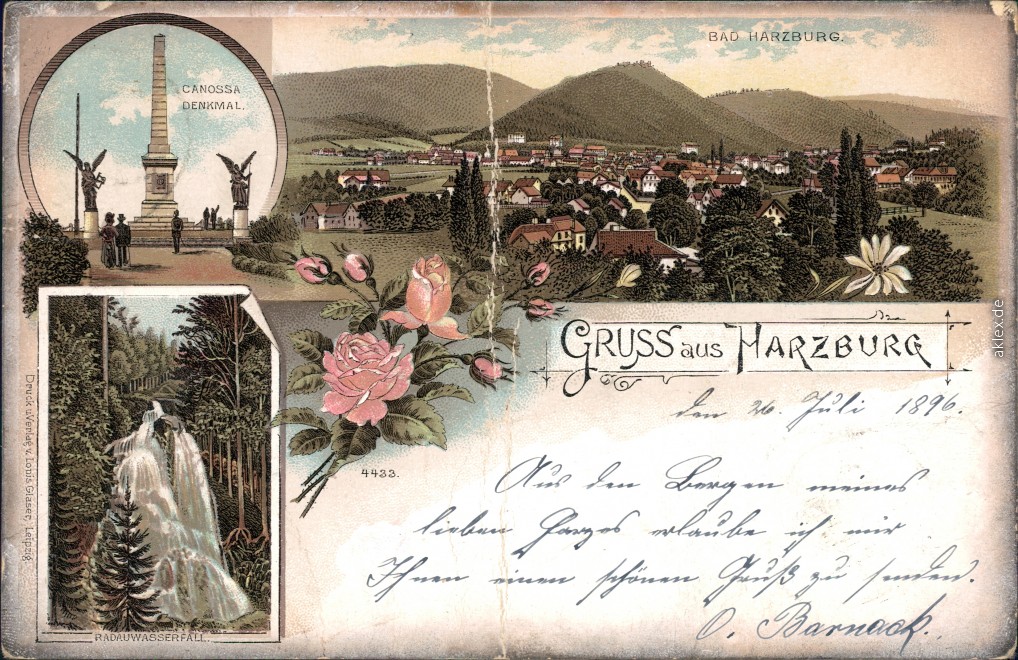 CANOSSA
DENKMAL.
BAD HARZBURG.
GRUSS aus HARZBURG
den 26. Juli 1896.
4433.
Aus den Bergen meines
lieben Harzes erlaube ich mir
Ihnen einen schönen Gruß zu senden.
O. Barnack.
RADAUWASSERFALL.
Druck u. Verlag v. Louis Glaser, Leipzig.
aklex.de